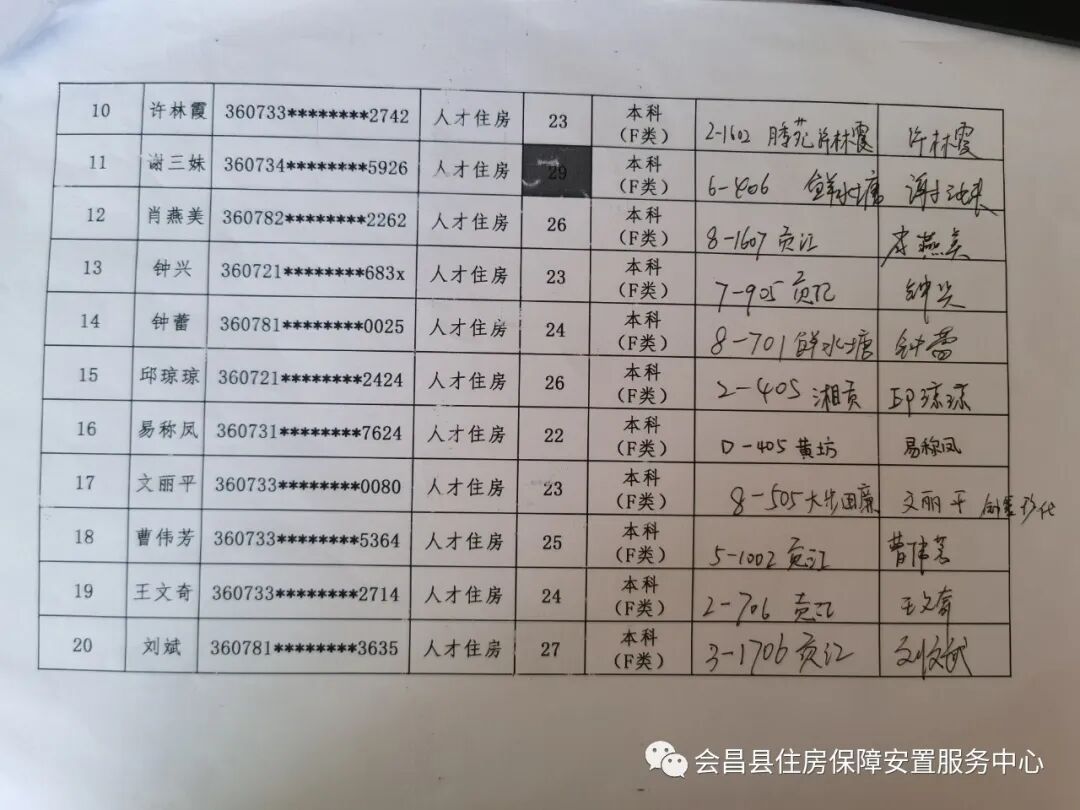 10 许林霞 360733********2742 人才住房 23 本科(F类) 2-1602 许林霞 许林霞
11 谢三妹 360734********5926 人才住房 29 本科(F类) 6-406 鲜水塘 谢三妹
12 肖燕美 360782********2262 人才住房 26 本科(F类) 8-1607 贡江 肖燕美
13 钟兴 360721********683x 人才住房 23 本科(F类) 7-905 贡江 钟兴
14 钟蕾 360781********0025 人才住房 24 本科(F类) 8-701 鲜水塘 钟蕾
15 邱琼琼 360721********2424 人才住房 26 本科(F类) 2-405 湘贡 邱琼琼
16 易称凤 360731********7624 人才住房 22 本科(F类) D-405 黄坊 易称凤
17 文丽平 360733********0080 人才住房 23 本科(F类) 8-505 文丽平
18 曹伟芳 360733********5364 人才住房 25 本科(F类) 5-1002 贡江 曹伟芳
19 王文奇 360733********2714 人才住房 24 本科(F类) 2-706 贡江 王文奇
20 刘斌 360781********3635 人才住房 27 本科(F类) 3-1706 贡江 刘斌
会昌县住房保障安置服务中心